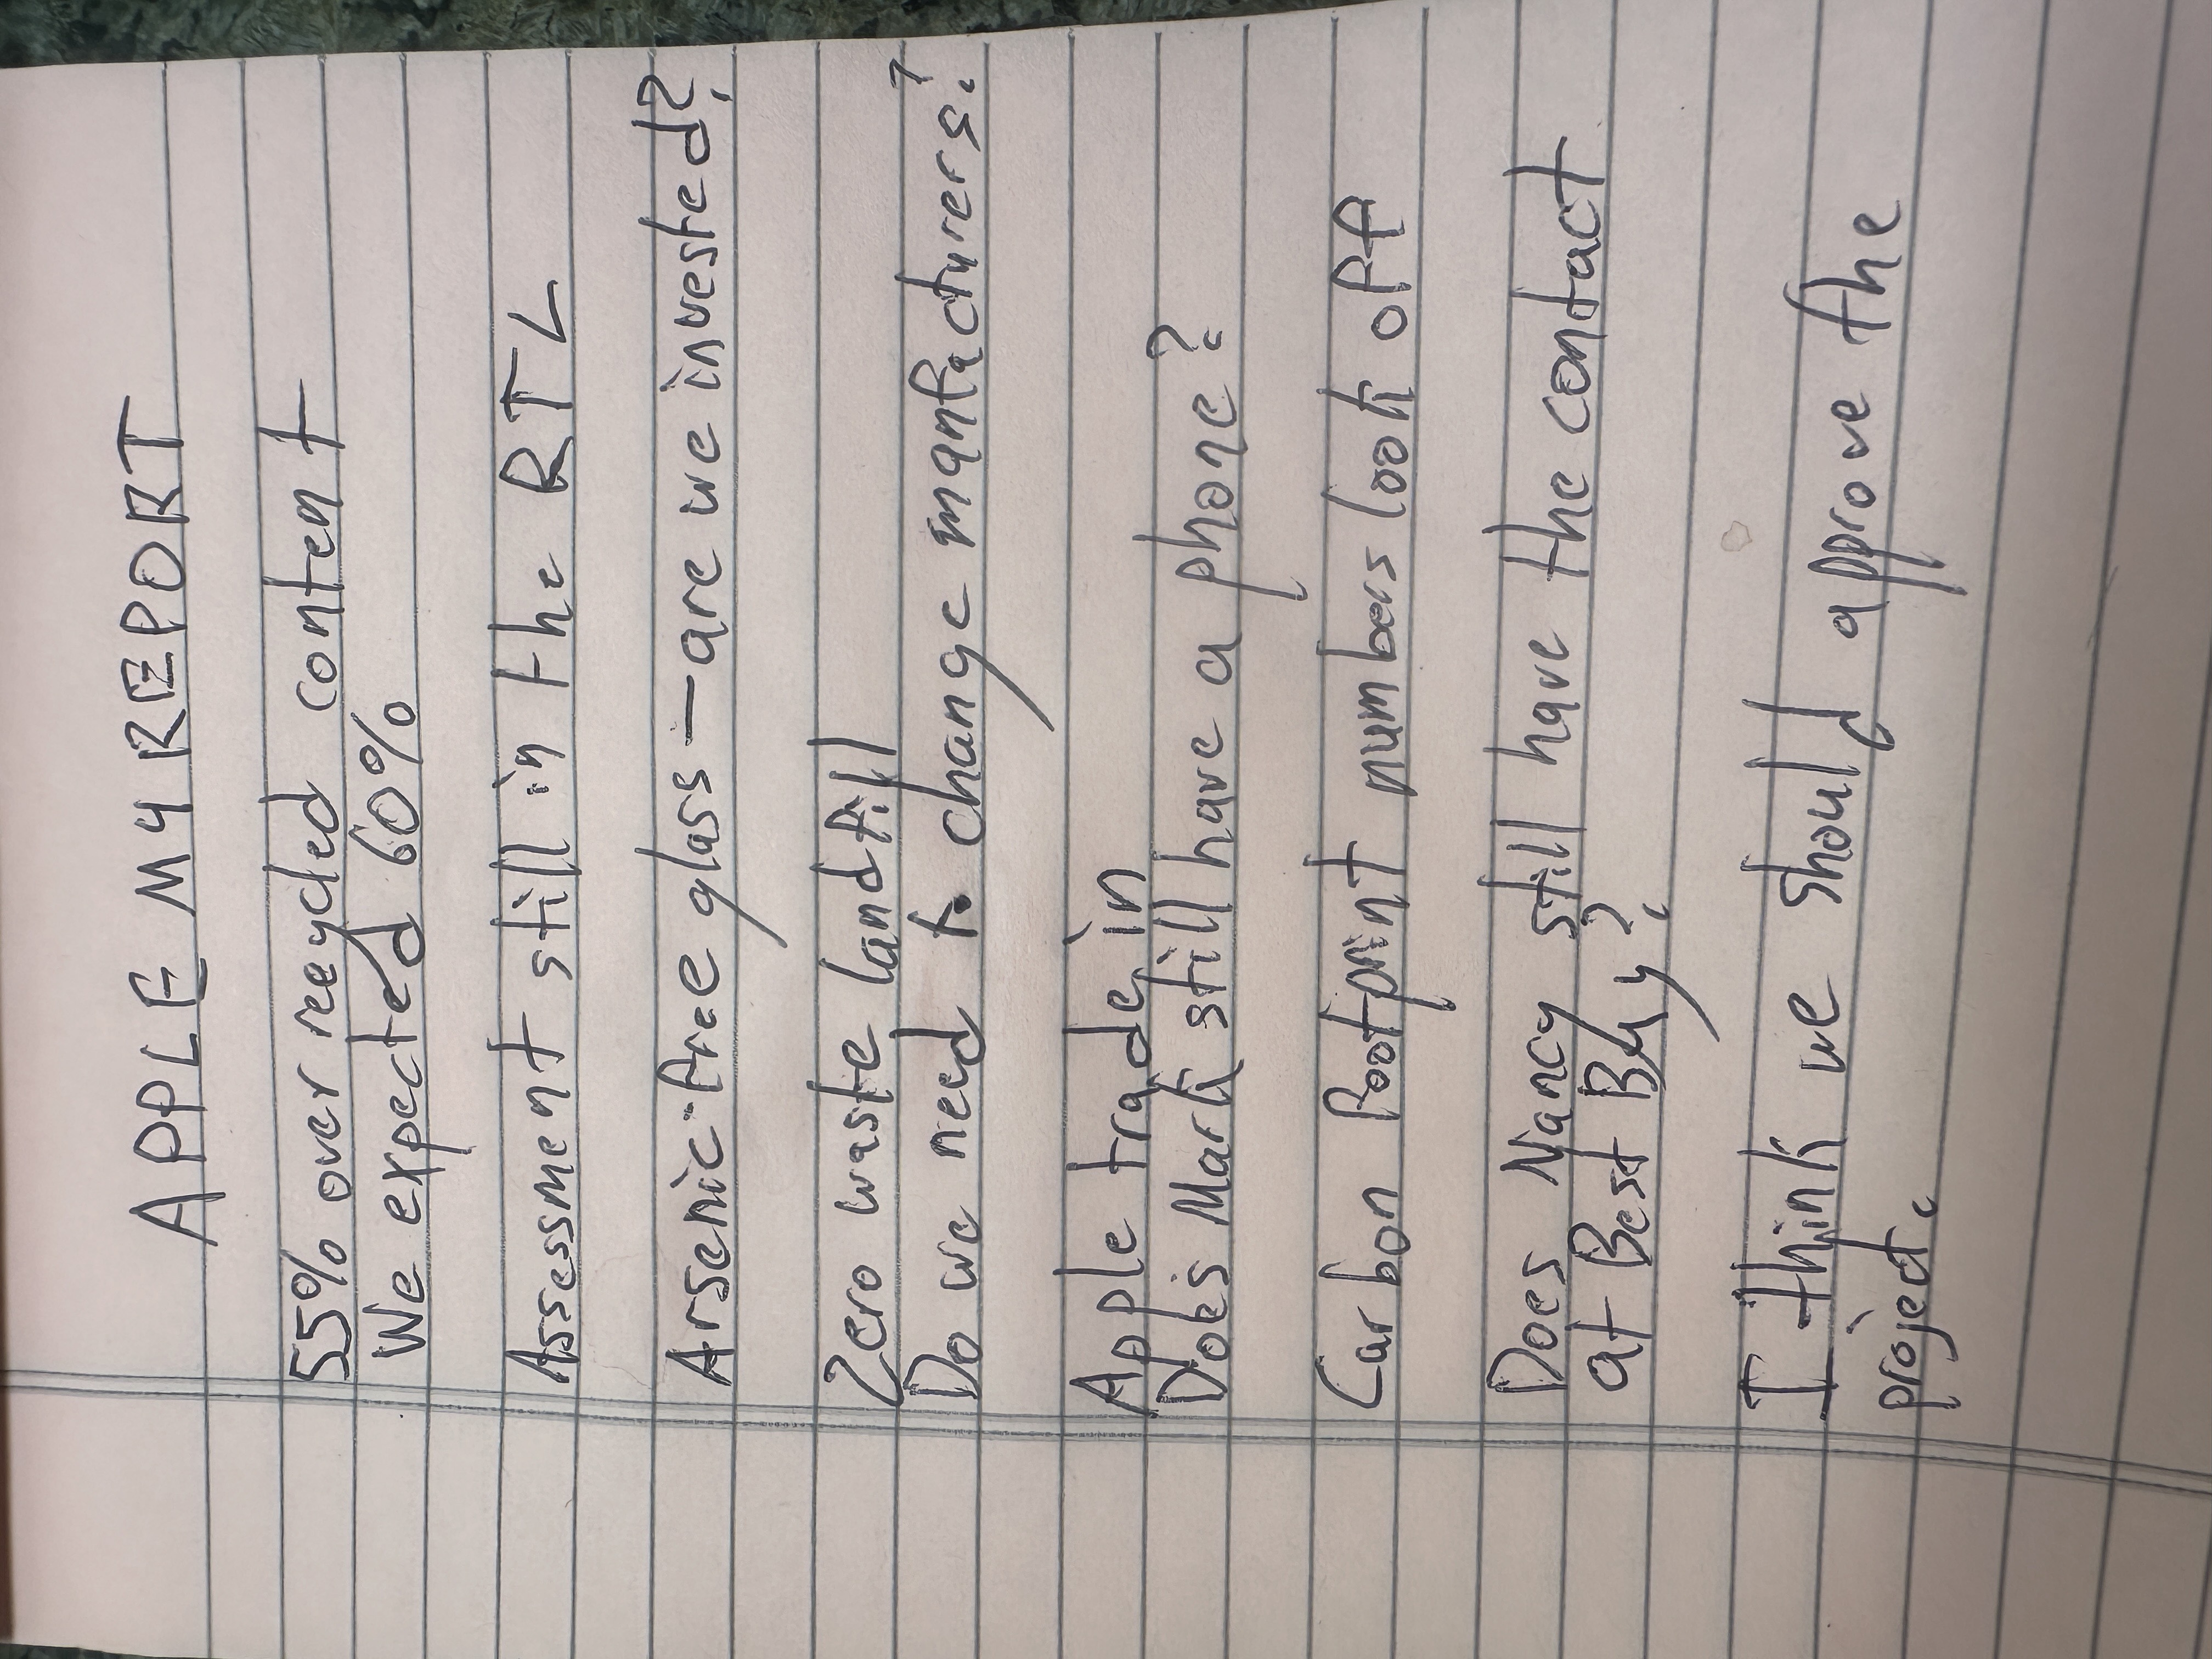 APPLE M4 REPORT
55% over recycled content
We expected 60%
Assessment still in the RTL
Arsenic-free glass — are we invested?
Zero waste landfill
Do we need to change manfacturers?
Apple trade in
Does Mark still have a phone?
Carbon footprint numbers look off
Does Nancy still have the contact
at Best Buy?
I think we should approve the
project.